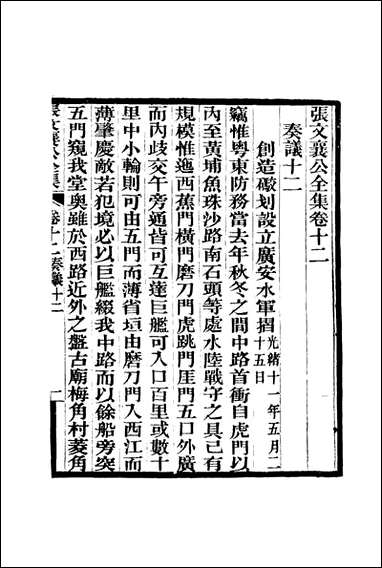 張文襄公全集卷十二
奏議十二
創造礮划設立廣安水軍摺 光緒十一年五月二
十五日
竊惟粵東防務當去年秋冬之間中路首衝自虎門以
內至黃埔魚珠沙路南石頭等處水陸戰守之具已有
規模惟迤西蕉門橫門磨刀門虎跳門厓門五口外廣
而內歧交午旁通皆可互達巨艦可入口百里或數十
里中小輪則可由五門而薄省垣由磨刀門入西江而
薄肇慶敵若犯境必以巨艦綴我中路而以餘船旁突
五門窺我堂奧雖於西路近外之盤古廟梅角村菱角
張文襄公全集 卷十二 奏議十二 一